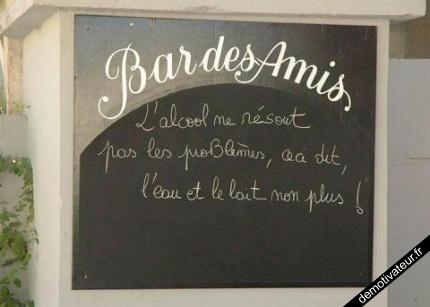 Bar des Amis
L'alcool ne résout
pas les proBlèmes, ceci dit,
l'eau et le lait non plus !
demotivateur.fr